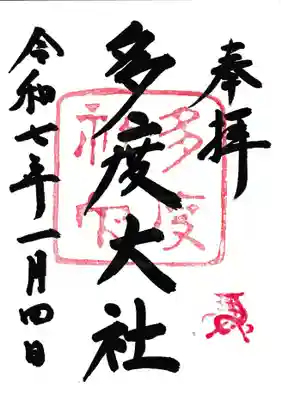 奉拝
多度大社
令和七年一月四日
多度